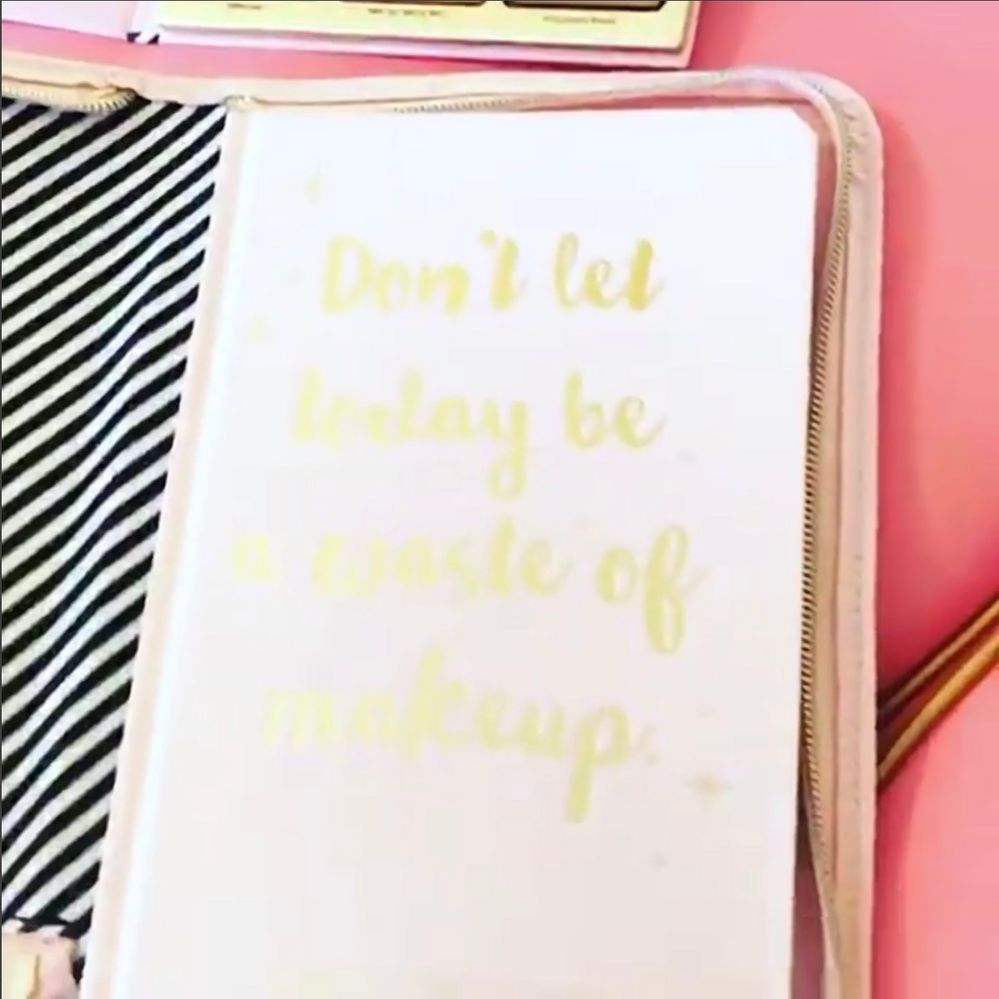 Don't let
today be
a waste of
makeup.